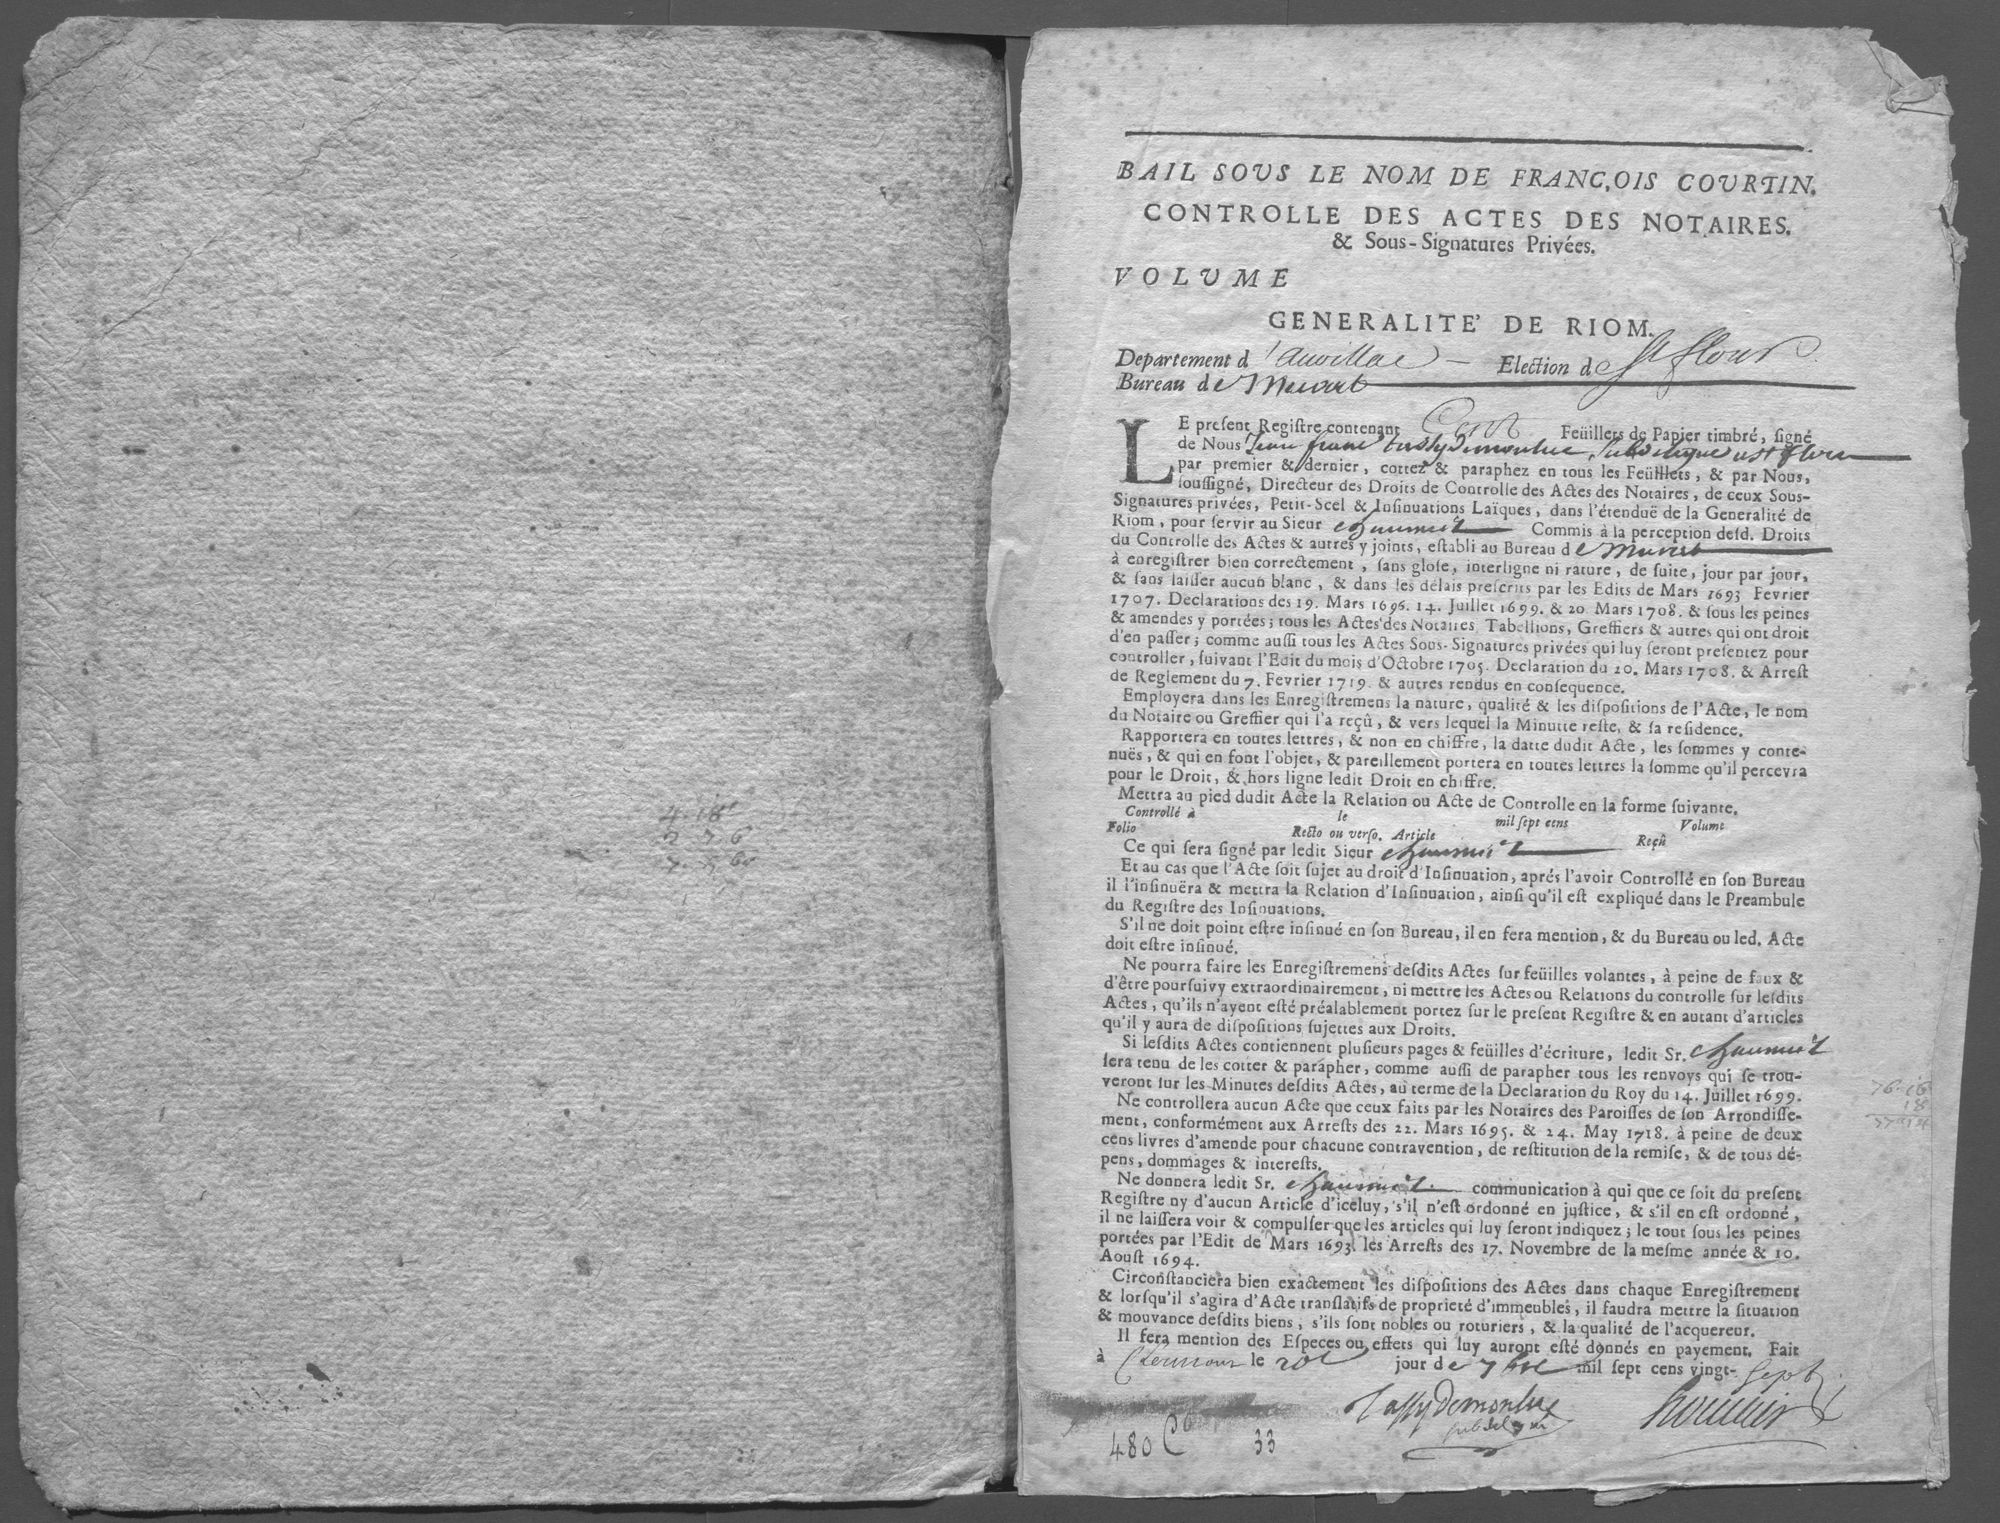 4. 18
7 7 6
BAIL SOUS LE NOM DE FRANÇOIS COURTIN.
CONTROLLE DES ACTES DES NOTAIRES.
& Sous-Signatures Privées.
VOLUME
GENERALITE' DE RIOM.
Departement d'auvillac Election de St flour
Bureau de Murat
LE present Registre contenant Cent Feüillets de Papier timbré, signé
de Nous Jean franc tassy Demonluc, Subdelegué a St flour
par premier & dernier, cottez & paraphez en tous les Feüilllets, & par Nous,
soussigné, Directeur des Droits de Controlle des Actes des Notaires, de ceux Sous-
Signatures privées, Petit-Scel & Insinuations Laïques, dans l'étenduë de la Generalité de
Riom, pour servir au Sieur chaumeil Commis à la perception desd. Droits
du Controlle des Actes & autres y joints, establi au Bureau de Murat
à enregistrer bien correctement, sans glose, interligne ni rature, de suite, jour par jour,
& sans laisser aucun blanc, & dans les délais prescrits par les Edits de Mars 1693 Fevrier
1707. Declarations des 19. Mars 1696. 14. Juillet 1699. & 20 Mars 1708. & sous les peines
& amendes y portées; tous les Actes des Notaires, Tabellions, Greffiers & autres qui ont droit
d'en passer; comme aussi tous les Actes Sous-Signatures privées qui luy seront presentez pour
controller, suivant l'Edit du mois d'Octobre 1705. Declaration du 20. Mars 1708. & Arrest
de Reglement du 7. Fevrier 1719. & autres rendus en consequence.
Employera dans les Enregistremens la nature, qualité & les dispositions de l'Acte, le nom
du Notaire ou Greffier qui l'a reçû, & vers lequel la Minutte reste, & sa residence.
Rapportera en toutes lettres, & non en chiffre, la datte dudit Acte, les sommes y conte-
nuës, & qui en font l'objet, & pareillement portera en toutes lettres la somme qu'il percevra
pour le Droit, & hors ligne ledit Droit en chiffre.
Mettra au pied dudit Acte la Relation ou Acte de Controlle en la forme suivante.
Controllé à le mil sept cens Volume
Folio Recto ou verso. Article Reçû
Ce qui sera signé par ledit Sieur chaumeil
Et au cas que l'Acte soit sujet au droit d'Insinuation, aprés l'avoir Controllé en son Bureau
il l'insinuëra & mettra la Relation d'Insinuation, ainsi qu'il est expliqué dans le Preambule
du Registre des Insinuations.
S'il ne doit point estre insinué en son Bureau, il en fera mention, & du Bureau ou led. Acte
doit estre insinué.
Ne pourra faire les Enregistremens desdits Actes sur feüilles volantes, à peine de faux &
d'être poursuivy extraordinairement, ni mettre les Actes ou Relations du controlle sur lesdits
Actes, qu'ils n'ayent esté préalablement portez sur le present Registre & en autant d'articles
qu'il y aura de dispositions sujettes aux Droits.
Si lesdits Actes contiennent plusieurs pages & feüilles d'écriture, ledit Sr. chaumeil
sera tenu de les cotter & parapher, comme aussi de parapher tous les renvoys qui se trou-
veront sur les Minutes desdits Actes, au terme de la Declaration du Roy du 14. Juillet 1699.
Ne controllera aucun Acte que ceux faits par les Notaires des Paroisses de son Arrondisse-
ment, conformément aux Arrests des 22. Mars 1695. & 24. May 1718. à peine de deux
cens livres d'amende pour chacune contravention, de restitution de la remise, & de tous dé-
pens, dommages & interests.
Ne donnera ledit Sr. chaumeil communication à qui que ce soit du present
Registre ny d'aucun Article d'iceluy, s'il n'est ordonné en justice, & s'il en est ordonné,
il ne laissera voir & compulser que les articles qui luy seront indiquez; le tout sous les peines
portées par l'Edit de Mars 1693. les Arrests des 17. Novembre de la mesme année & 10.
Aoust 1694.
Circonstanciera bien exactement les dispositions des Actes dans chaque Enregistrement
& lorsqu'il s'agira d'Acte translatifs de proprieté d'immeubles, il faudra mettre la situation
& mouvance desdits biens, s'ils sont nobles ou roturiers, & la qualité de l'acquereur.
Il fera mention des Especes ou effets qui luy auront esté donnés en payement. Fait
à Clermont le 20e jour de 7bre mil sept cens vingt-Sept
Tassy Demonluc
subdelegué
480 Co 33
76. 16
18
77 14